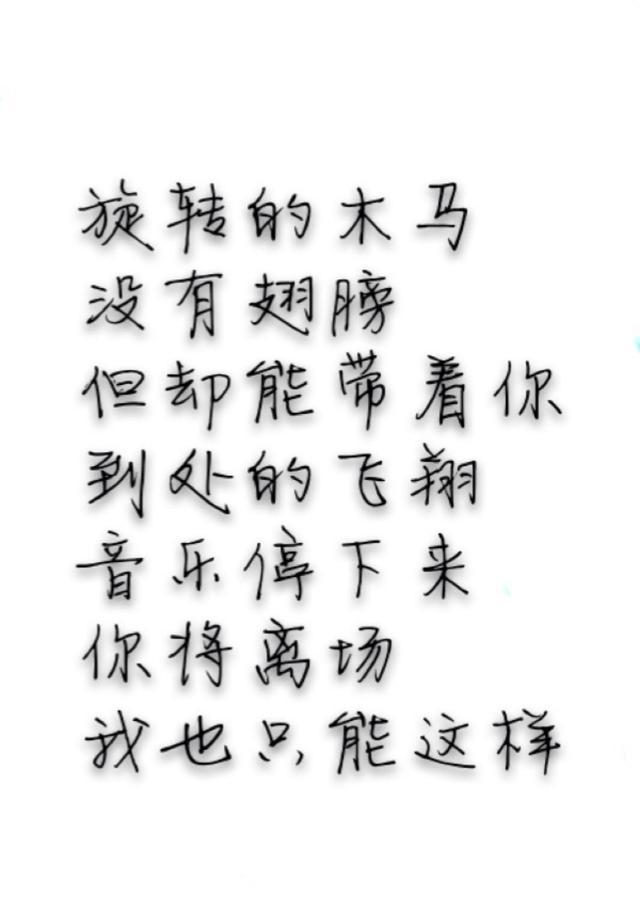 旋转的木马
没有翅膀
但却能带着你
到处的飞翔
音乐停下来
你将离场
我也只能这样